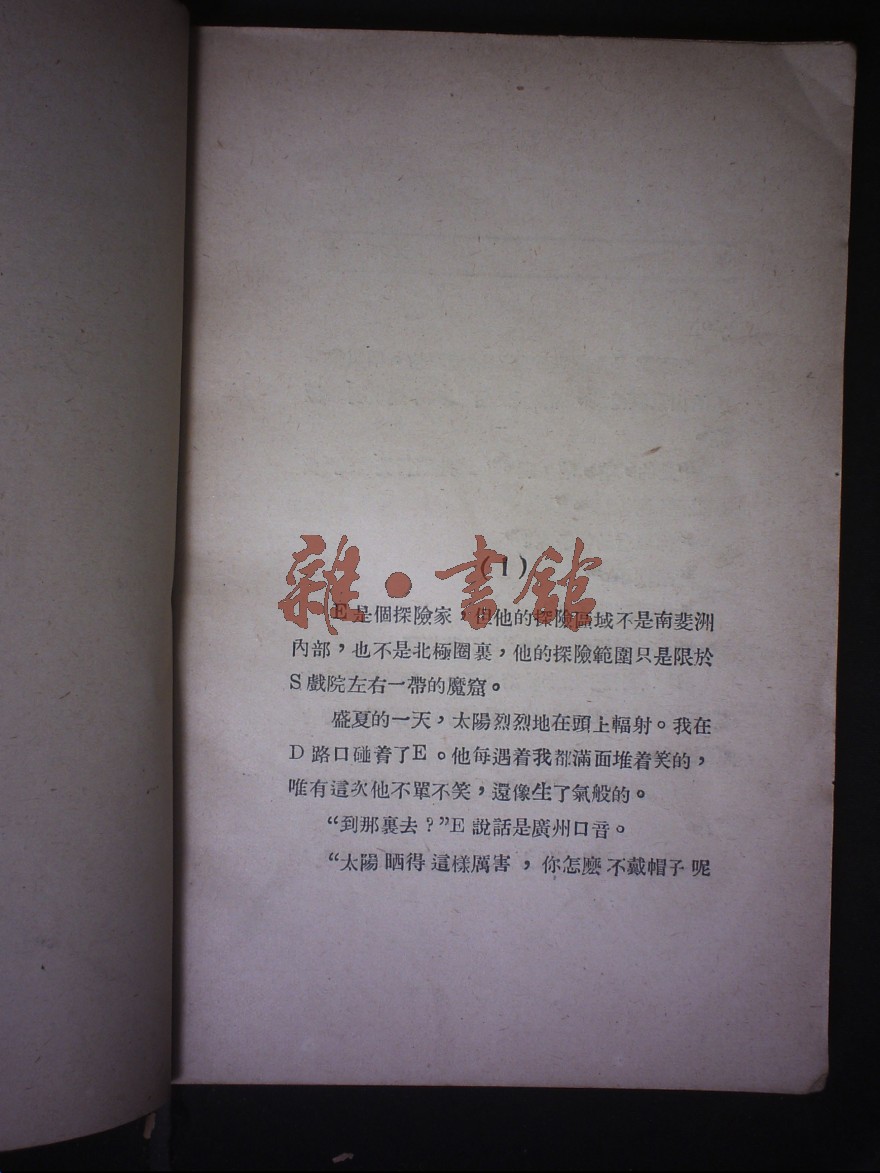 (1)
雜·書館
E是個探險家，但他的探險區域不是南斐洲
內部，也不是北極圈裏，他的探險範圍只是限於
S戲院左右一帶的魔窟。
盛夏的一天，太陽烈烈地在頭上輻射。我在
D路口碰着了E。他每遇着我都滿面堆着笑的，
唯有這次他不單不笑，還像生了氣般的。
“到那裏去？”E說話是廣州口音。
“太陽晒得這樣厲害，你怎麽不戴帽子呢